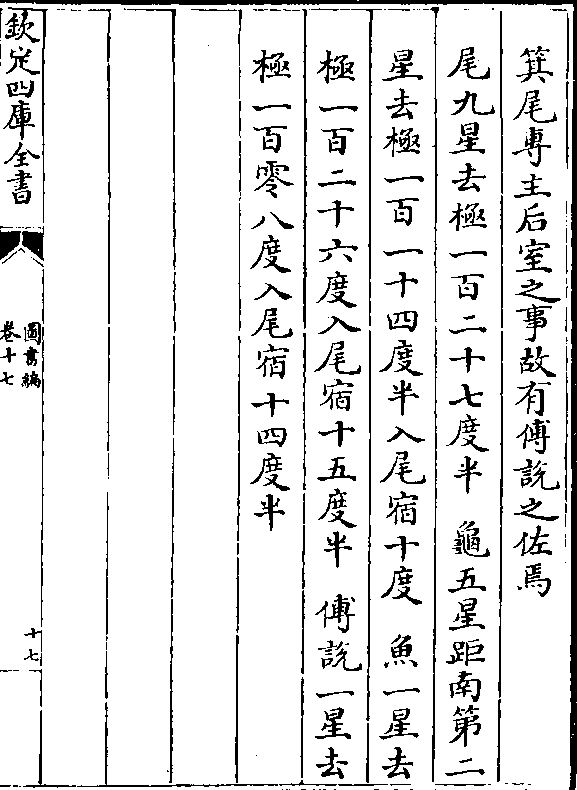 箕尾專主后室之事故有傅說之佐焉
尾九星去極一百二十七度半　龜五星距南第二
星去極一百一十四度半入尾宿十度　魚一星去
極一百二十六度入尾宿十五度半　傅說一星去
極一百零八度入尾宿十四度半
欽定四庫全書
圖書編
卷十七
十七